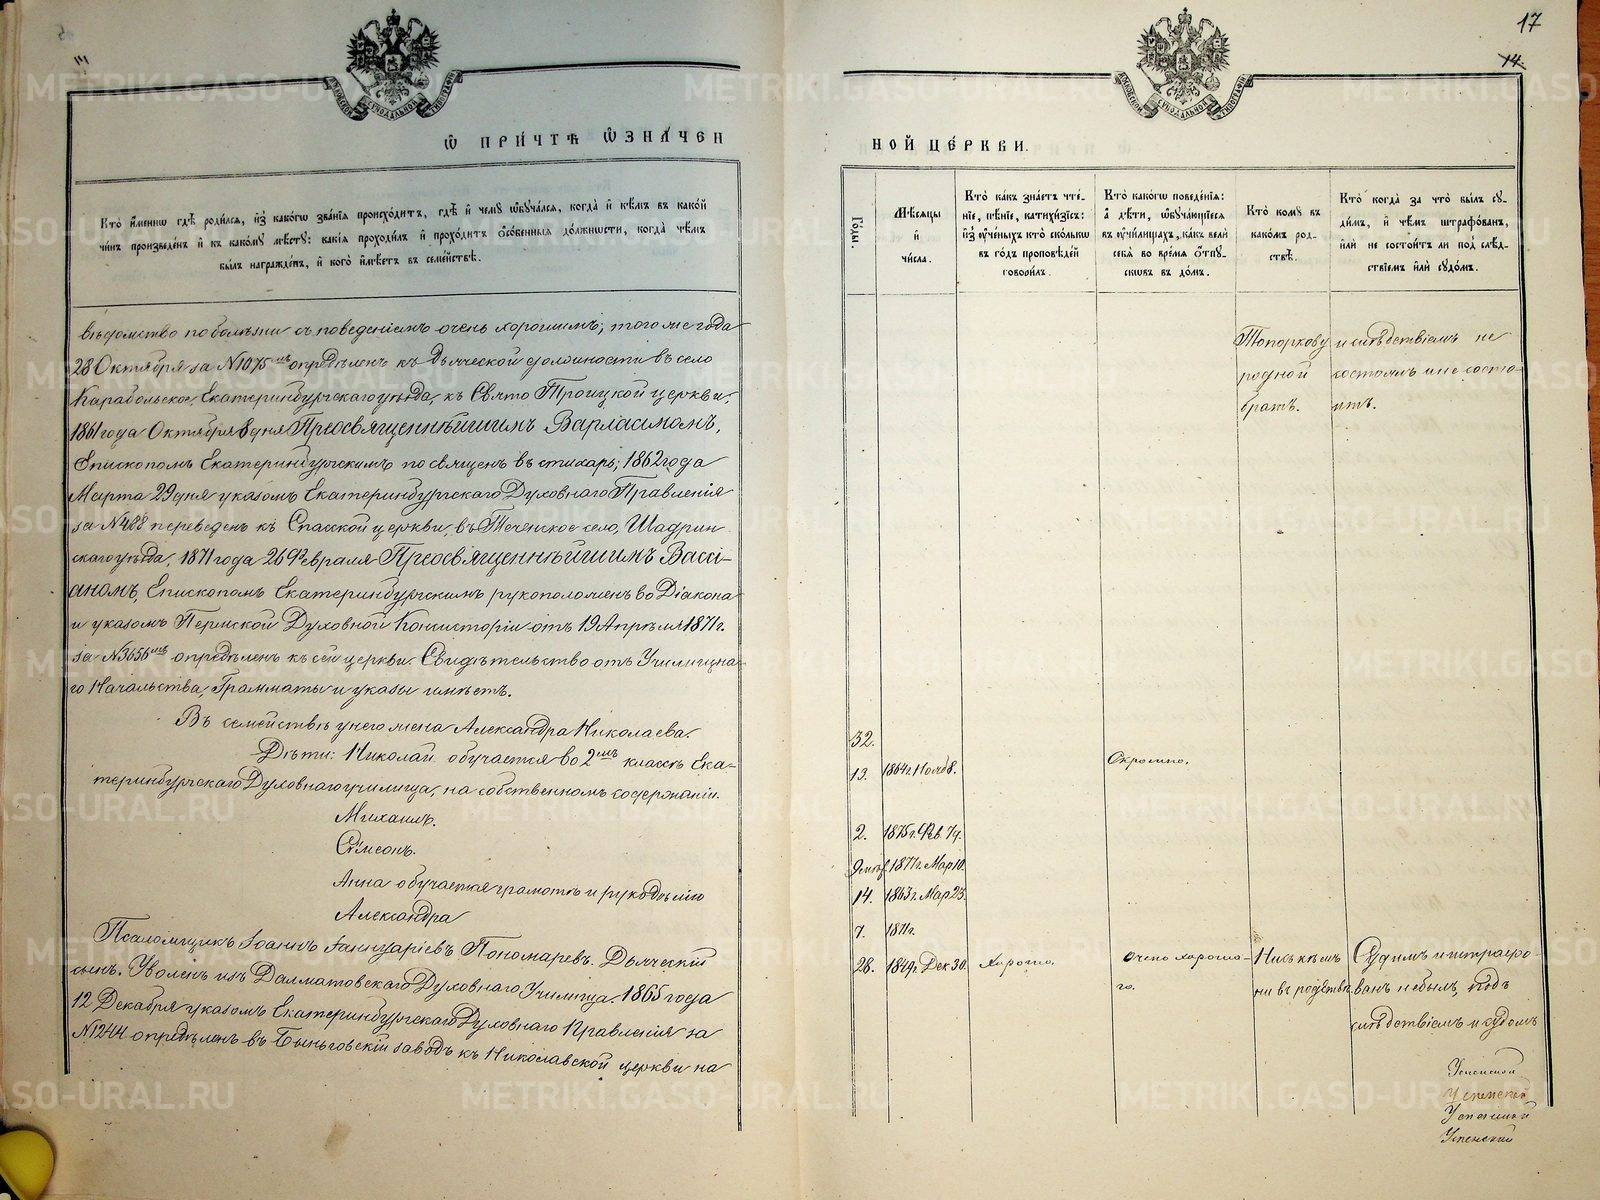 17
14
МОСКОВСКОЙ СУНОДАЛЬНОЙ ТИПОГРАФІИ
Ѡ ПРИ́ЧТѢ ѠЗНА́ЧЕН
Кто̀ и҆́менно гдѣ̀ роди́лся, и҆з̾ како́гѡ зва́нїя происхо́дитъ, гдѣ̀ и҆ чемꙋ̀ ѡ҆бꙋча́лся, когда̀ и҆ кѣ́мъ въ како́й
чи́нъ произведе́нъ и҆ къ како́мꙋ мѣ́стꙋ: какі̑ѧ проходи́лъ и҆ прохо́дитъ ѻ҆со́бенныѧ до́лжности, когда̀ чѣ́мъ
бы́лъ награжде́нъ, и҆ кого̀ и҆мѣ́етъ въ семе́йствѣ.
вѣдомство по болѣзни съ поведеніемъ очень хорошимъ; того же года
28 Октября за №1075мъ опредѣленъ къ Дьяческой должности въ село
Карабольское, Екатеринбургскаго уѣзда, къ Свято Троицкой церкви,
1861 года Октября 8 дня Преосвященнѣйшимъ Варлаамомъ,
Епископомъ Екатеринбургскимъ посвященъ въ стихарь; 1862 года
Марта 29 дня указомъ Екатеринбургскаго Духовнаго Правленія
за №488 переведенъ къ Спасской церкви, въ Теченское село, Шадрин
скаго уѣзда, 1871 года 26 Февраля Преосвященнѣйшимъ Вассі-
аномъ, Епископомъ Екатеринбургскимъ рукоположенъ во Діакона
и указомъ Пермской Духовной Консисторіи отъ 19 Апрѣля 1871 г.
за №3656мъ опредѣленъ къ сей церкви. Свидѣтельство отъ Училищна-
го Начальства, Грамматы и указы имѣетъ.
Въ семействѣ у него жена Александра Николаева.
Дѣти: Николай обучается во 2мъ классѣ Ека-
теринбургскаго Духовнаго училища, на собственномъ содержаніи.
Михаилъ.
Сѵмеонъ.
Анна обучается грамотѣ и рукодѣлію
Александра
Псаломщикъ Іоаннъ Іаннуаріевъ Пономаревъ. Дьяческій
сынъ. Уволенъ изъ Далматовскаго Духовнаго Училища. 1865 года
12 Декабря указомъ Екатеринбургскаго Духовнаго Правленія за
№1244 опредѣленъ въ Быньговскій заводъ къ Николавской церкви на
МОСКОВСКОЙ СУНОДАЛЬНОЙ ТИПОГРАФІИ
НОЙ ЦЕ́РКВИ.
Го́ды.
Мѣ́сяцы
и҆
чи́сла.
Кто̀ ка́къ зна́етъ чте́-
нїе, пѣ́нїе, катихи́зїсъ:
и҆з̾ ᲂу҆че́ныхъ кто̀ ско́лькѡ
въ го́дъ проповѣ́дей
говори́лъ.
Кто̀ како́гѡ поведе́нїѧ:
а҆ дѣ́ти, ѡ҆бꙋча́ющїеся
въ ᲂу҆чи́лищахъ, ка́къ велѝ
себѧ̀ во вре́мѧ ѿпꙋ-
сковъ въ до́мъ.
Кто̀ комꙋ̀ въ
како́мъ род-
ствѣ̀.
Кто̀ когда̀ за что̀ бы́лъ сꙋ-
ди́мъ, и҆ чѣ́мъ штрафо́ванъ,
и҆лѝ не состои́тъ ли под̾ слѣ́д-
ствїемъ и҆лѝ сꙋдо́мъ.
Топоркову
родной
братъ.
и слѣдствіемъ не
состоялъ и не состо-
итъ.
32.
13. 1864 г. Нояб 8. Скромно.
2. 1875 г. Фев 7 ч.
1871 г. Мар 10.
14. 1863 г. Мар 25.
7. 1871 г.
28. 1849 г. Дек 30. Хорошо. Очень хорошо-
го.
Ни съ кѣмъ
ни въ родствѣ.
Судимъ и штрафо-
ванъ не былъ, подъ
слѣдствіемъ и судомъ
Успенскій
Успенскій
Успенскій
Успенскій
METRIKI.GASO-URAL.RU